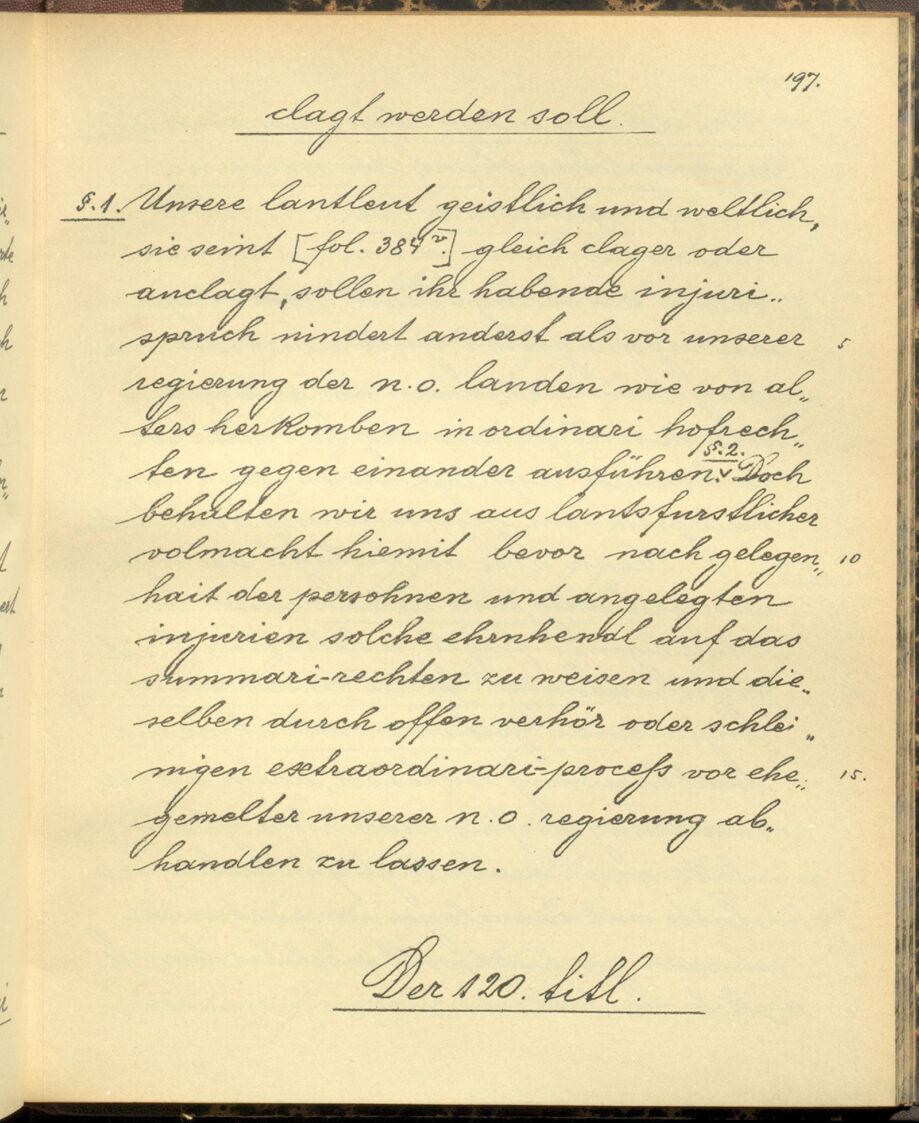 197.
clagt werden soll.
§.1. Unsere lantleut geistlich und weltlich,
sie seint [fol. 384v.] gleich clager oder
anclagt, sollen ihr habende injuri„
spruch nindert anderst als vor unserer 5
regierung der n.o. landen wie von al„
ters herkomben in ordinari hofrech„
§.2.
ten gegen einander ausführen. Doch
behalten wir uns aus lantsfurstlicher
volmacht hiemit bevor nach gelegen„ 10
hait der persohnen und angelegten
injurien solche ehrnhendl auf das
summari-rechten zu weisen und die„
selben durch offen verhör oder schlei„
nigen extraordinari-process vor ehe„ 15.
gemelter unserer n.o. regierung ab„
handlen zu lassen.
Der 120. titl.